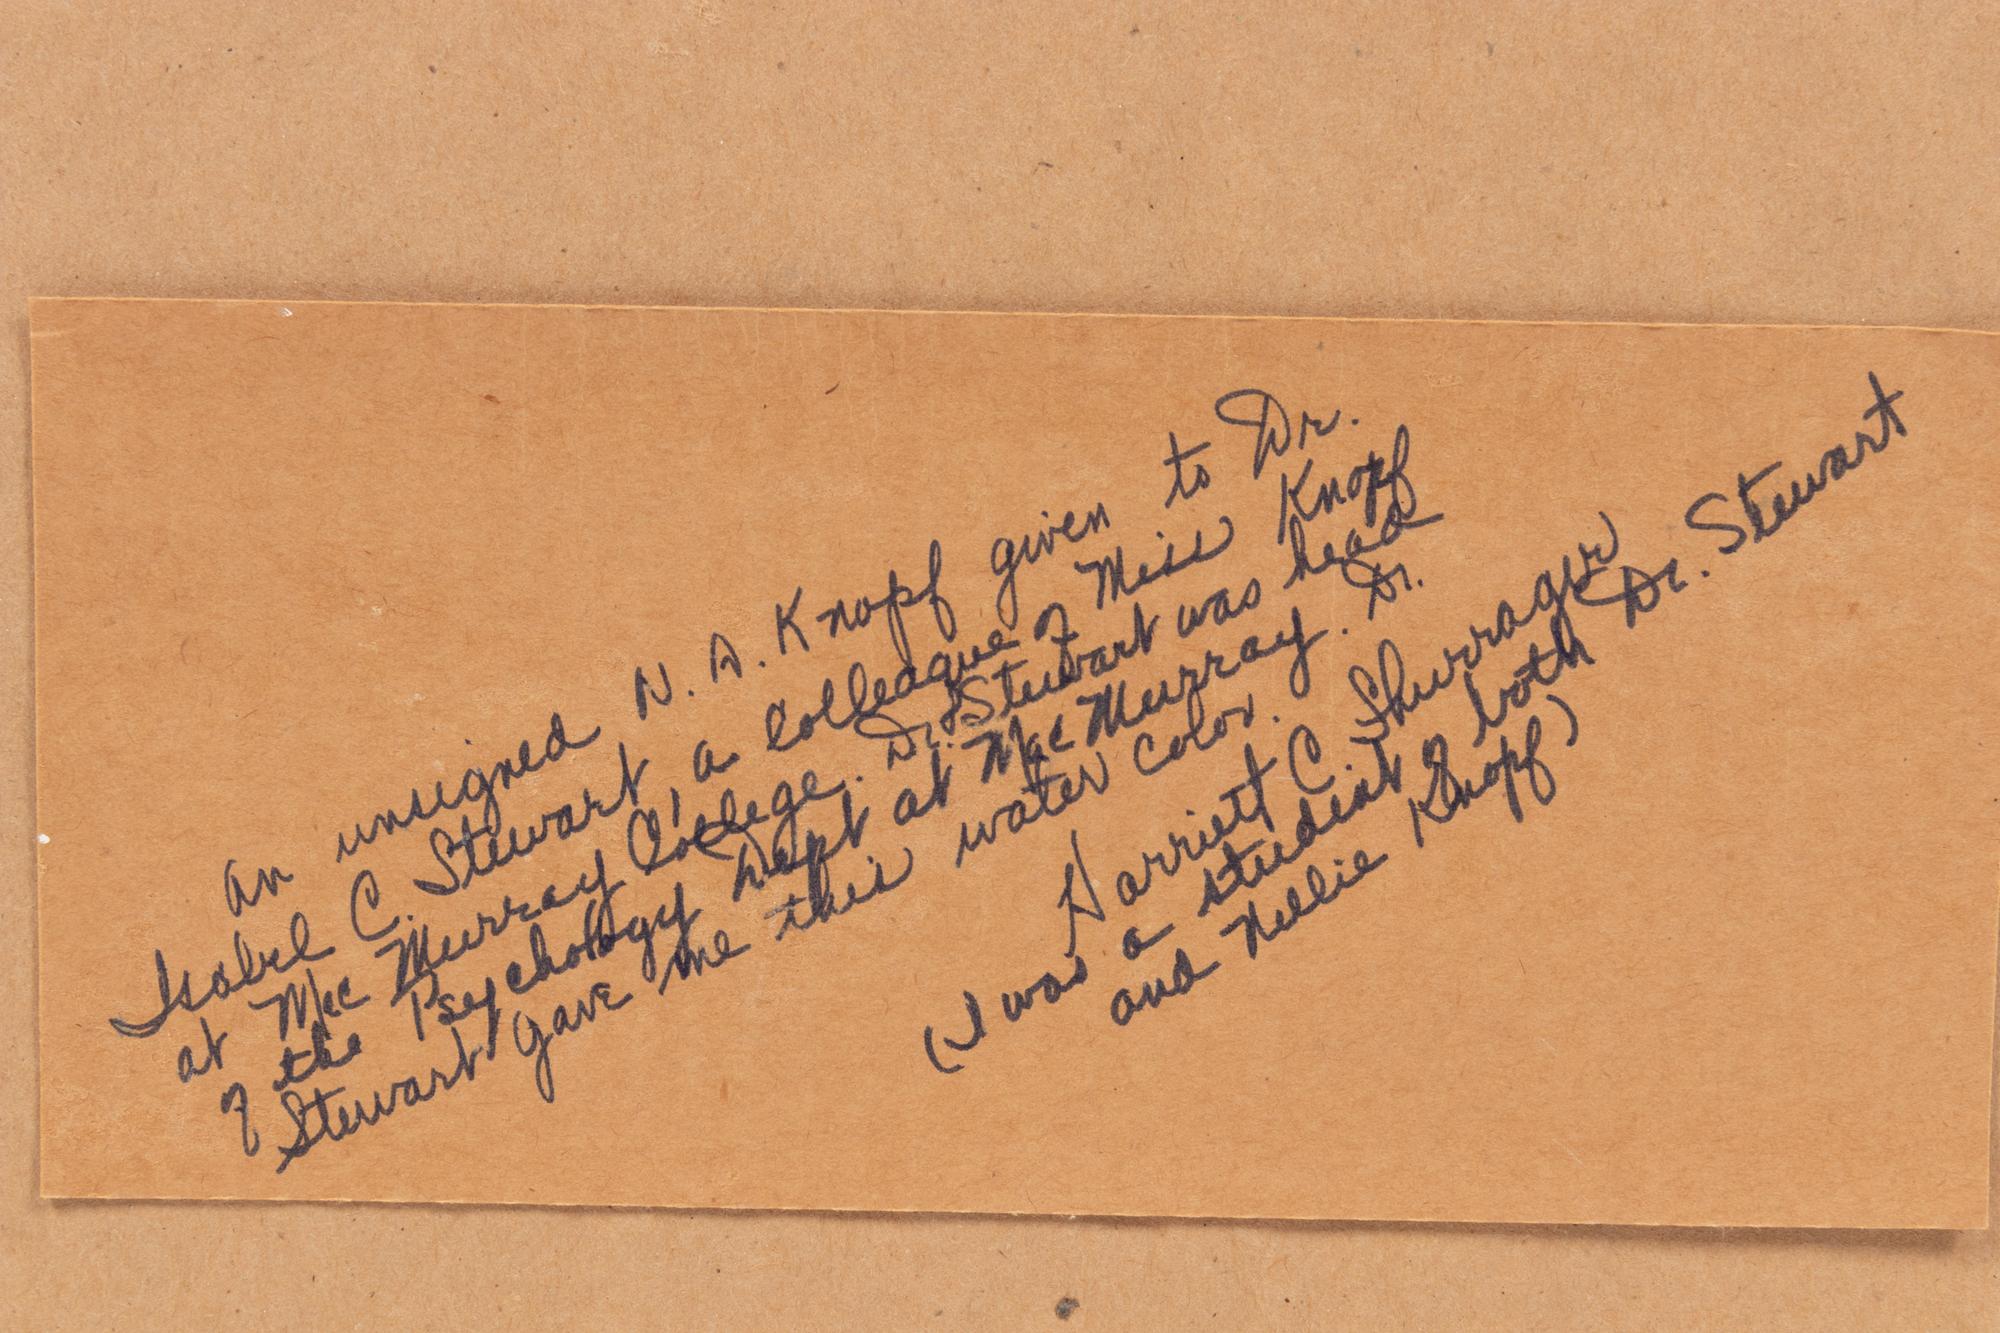 An unsigned N. A. Knopf given to Dr.
Isabel C. Stewart, a colleague of Miss Knopf
at MacMurray College. Dr. Stewart was head
of the Psychology Dept at MacMurray. Dr.
Stewart gave me this water color.
Harriett C. Shurrager
(I was a student of both Dr. Stewart
and Nellie Knopf)